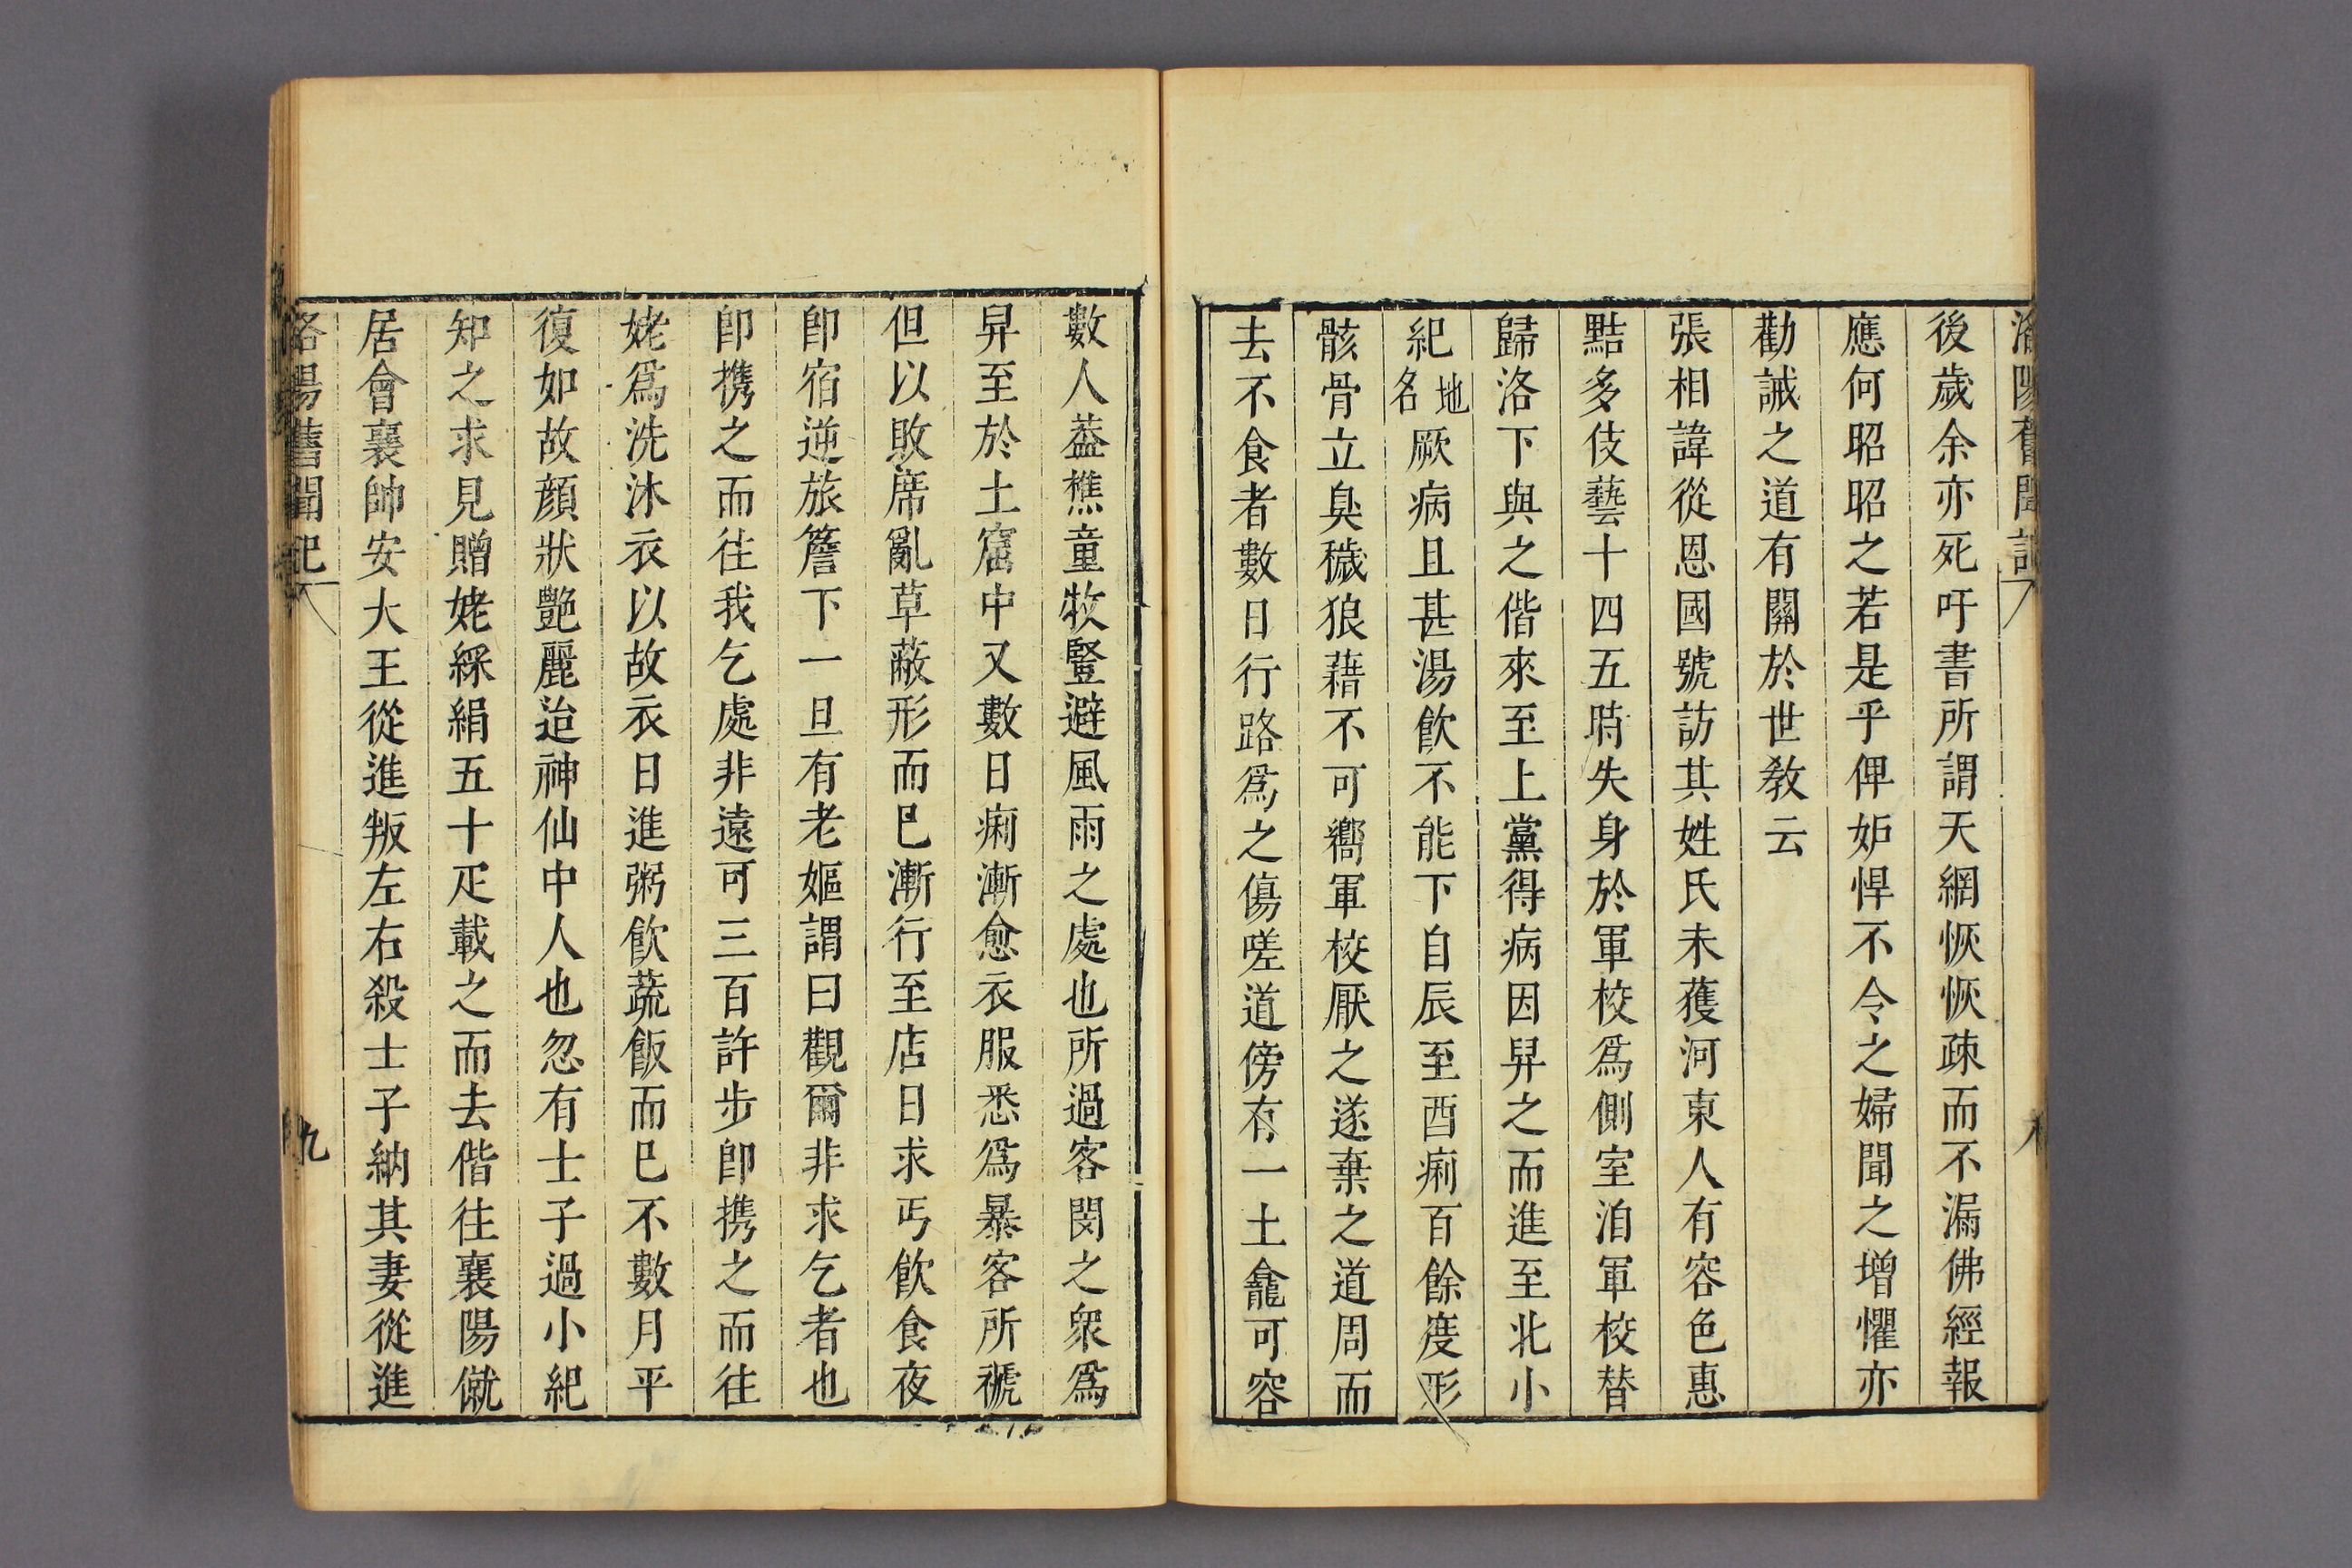 後歲余亦死吁書所謂天網恢恢疎而不漏佛經報
應何昭昭之若是乎俾妒悍不令之婦聞之增懼亦
勸誡之道有關於世教云
張相諱從恩國號訪其姓氏未䕶河東人有容色惠
黠多伎藝十四五時失身於軍校爲側室洎軍校替
歸洛下與之偕來至上黨得病因舁之而進至北小
紀地名厥病且甚湯飲不能下自辰至酉痢百餘度形
骸骨立臭穢狼藉不可嚮軍校厭之遂棄之道周而
去不食者數日行路爲之傷嗟道傍有一土龕可容
數人葢樵童牧豎避風雨之處也所過客閔之衆爲
舁至於土窟中又數日痢漸愈衣服悉爲暴客所褫
但以敗席亂草蔽形而已漸行至店日求丐飲食夜
卽宿逆旅簷下一旦有老嫗謂曰觀爾非求乞者也
卽携之而往我乞處非遠可三百許步卽携之而往
姥爲洗沐衣以故衣日進粥飲蔬飯而已不數月平
復如故顏狀艷麗迨神仙中人也忽有士子過小紀
知之求見贈姥綵絹五十疋載之而去偕往襄陽僦
居會襄帥安大王從進叛左右殺士子納其妻從進
洛陽舊聞記
九